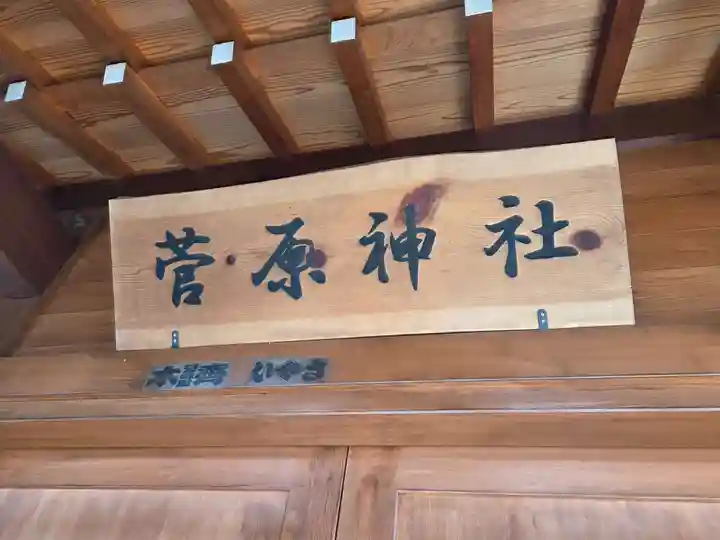 菅原神社
いやさ